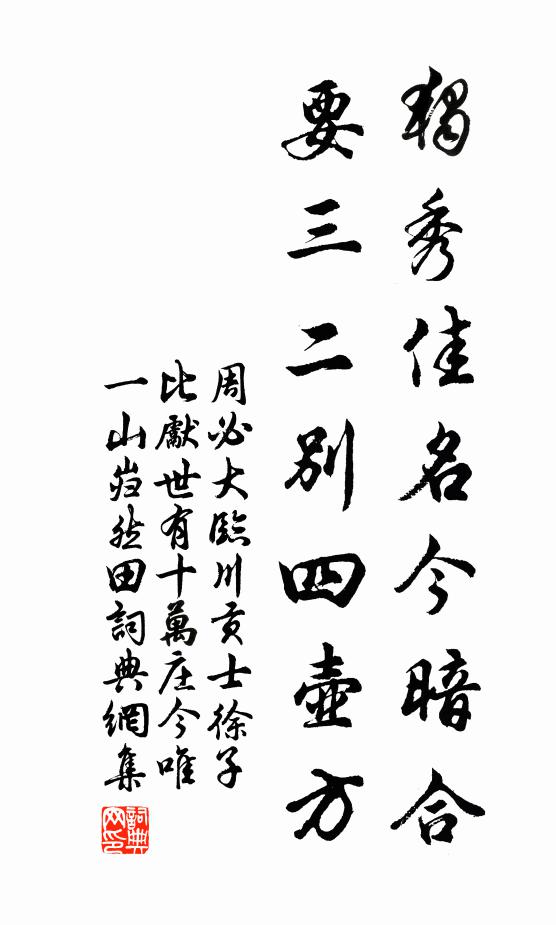 獨秀佳名今暗合
要三二別四壺方
周必大臨川貢士徐子
比獻世有十萬庄今唯
一山巋然田詞典網集
詞典网印